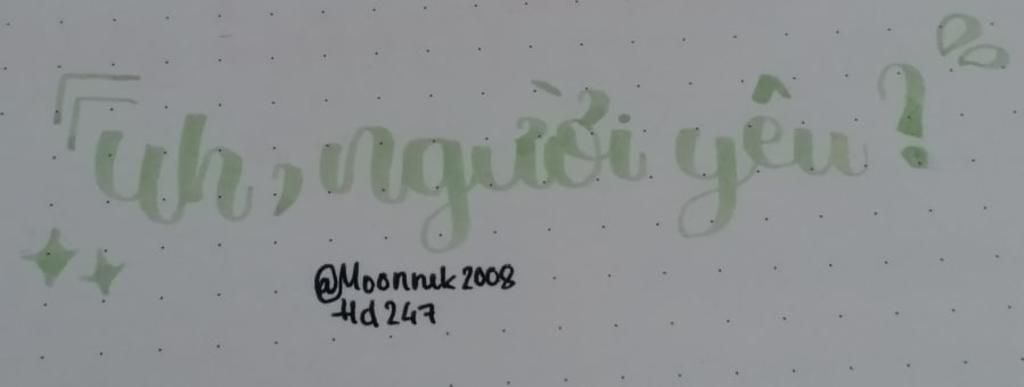 uh, người yêu?
@Moonnek2008
Hd247